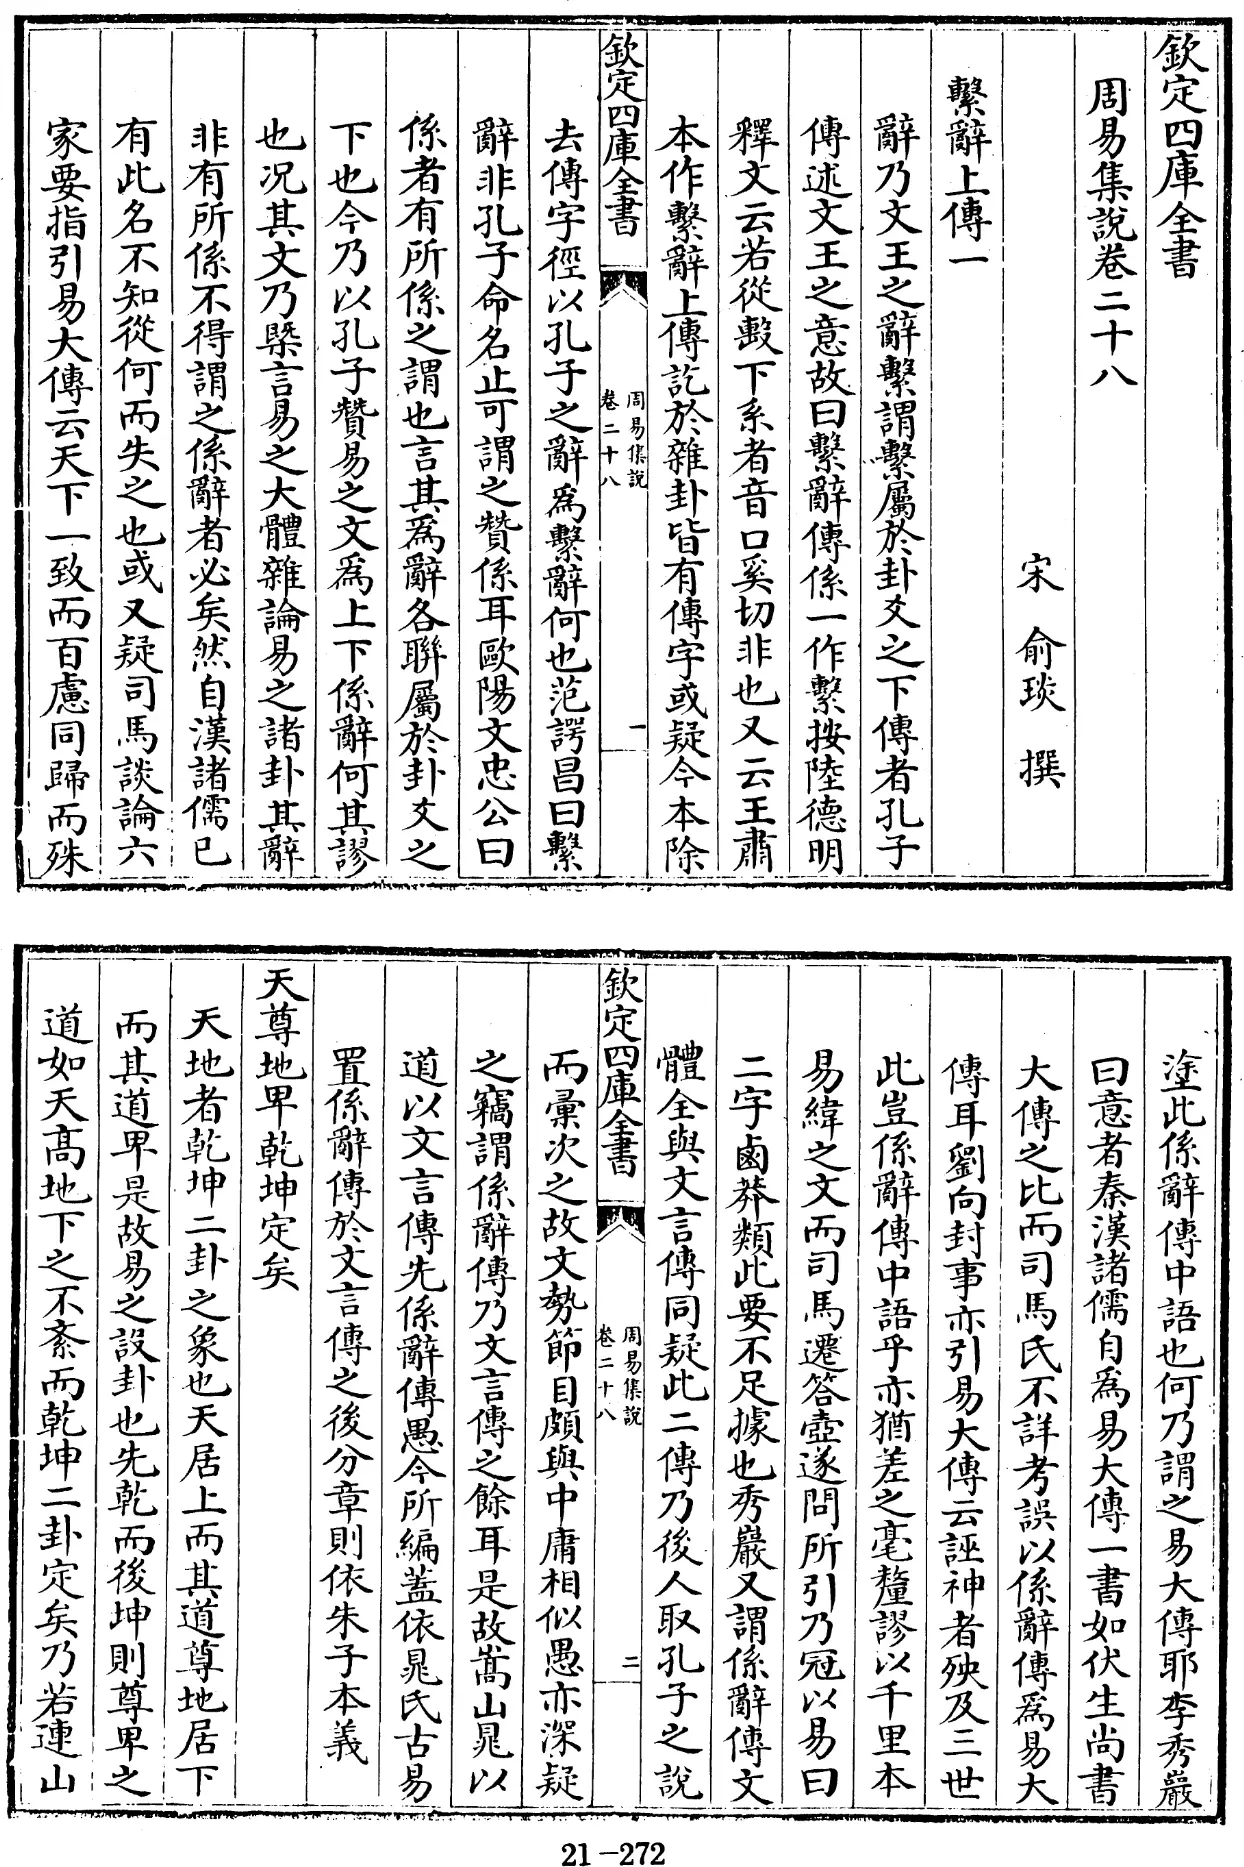 欽定四庫全書
周易集說卷二十八
宋 俞琰 撰
繫辭上傳一
辭乃文王之辭繫謂繫屬於卦爻之下傳者孔子
傳述文王之意故曰繫辭傳係一作繫按陸德明
釋文云若從毄下系者音口奚切非也又云王肅
本作繫辭上傳訖於雜卦皆有傳字或疑今本除
欽定四庫全書
周易集說
卷二十八
一
去傳字徑以孔子之辭為繫辭何也范諤昌曰繫
辭非孔子命名止可謂之贊係耳歐陽文忠公曰
係者有所係之謂也言其為辭各聯屬於卦爻之
下也今乃以孔子贊易之文為上下係辭何其謬
也況其文乃槩言易之大體雜論易之諸卦其辭
非有所係不得謂之係辭者必矣然自漢諸儒已
有此名不知從何而失之也或又疑司馬談論六
家要指引易大傳云天下一致而百慮同歸而殊
塗此係辭傳中語也何乃謂之易大傳耶李秀巖
曰意者秦漢諸儒自為易大傳一書如伏生尚書
大傳之比而司馬氏不詳考誤以係辭傳為易大
傳耳劉向封事亦引易大傳云誣神者殃及三世
此豈係辭傳中語乎亦猶差之毫釐謬以千里本
易緯之文而司馬遷答壺遂問所引乃冠以易曰
二字鹵莽類此要不足據也秀巖又謂係辭傳文
體全與文言傳同疑此二傳乃後人取孔子之說
欽定四庫全書
周易集說
卷二十八
二
而彙次之故文勢節目頗與中庸相似愚亦深疑
之竊謂係辭傳乃文言傳之餘耳是故嵩山晁以
道以文言傳先係辭傳愚今所編蓋依晁氏古易
置係辭傳於文言傳之後分章則依朱子本義
天尊地卑乾坤定矣
天地者乾坤二卦之象也天居上而其道尊地居下
而其道卑是故易之設卦也先乾而後坤則尊卑之
道如天高地下之不紊而乾坤二卦定矣乃若連山
21-272